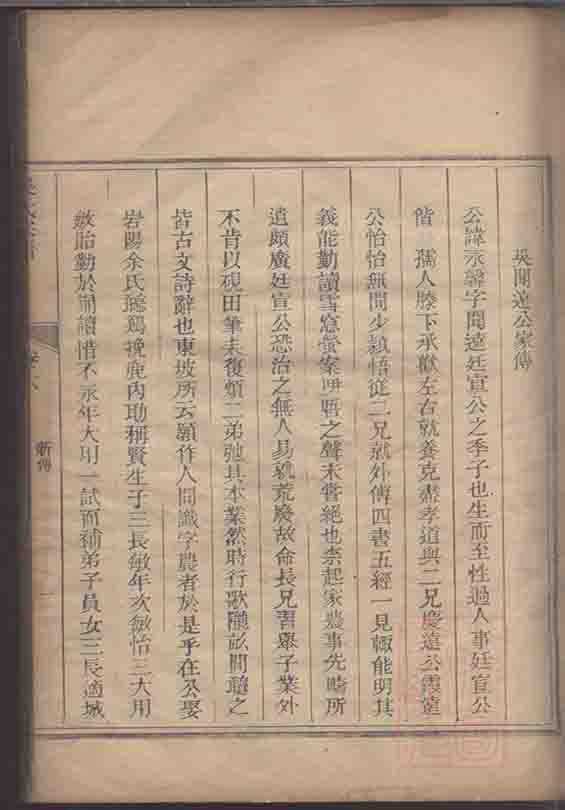 吳聞遠公家傳
公諱承謨字聞遠廷宣公之季子也生而至性過人事廷宣公
偕　孺人膝下承歡左右就養克盡孝道與二兄慶遠公霞遠
公怡怡無間少穎悟從二兄就外傅四書五經一見輒能明其
義能勤讀雪窓螢案呫唔之聲未嘗絕也柰起家農事先疇所
遺頗廣廷宣公恐治之無人易就荒廢故命長兄習舉子業外
不肯以硯田筆耒復煩二弟弛其本業然時行歌隴畝間隨之
皆古文詩辭也東坡所云願作人間識字農者於是乎在公娶
岩陽余氏鳴鷄挽鹿內助稱賢生子三長敏年次敏怡三大用
敏怡勤於誦讀惜不永年大用一試而補弟子員女三長適城
卷八
新傳
一